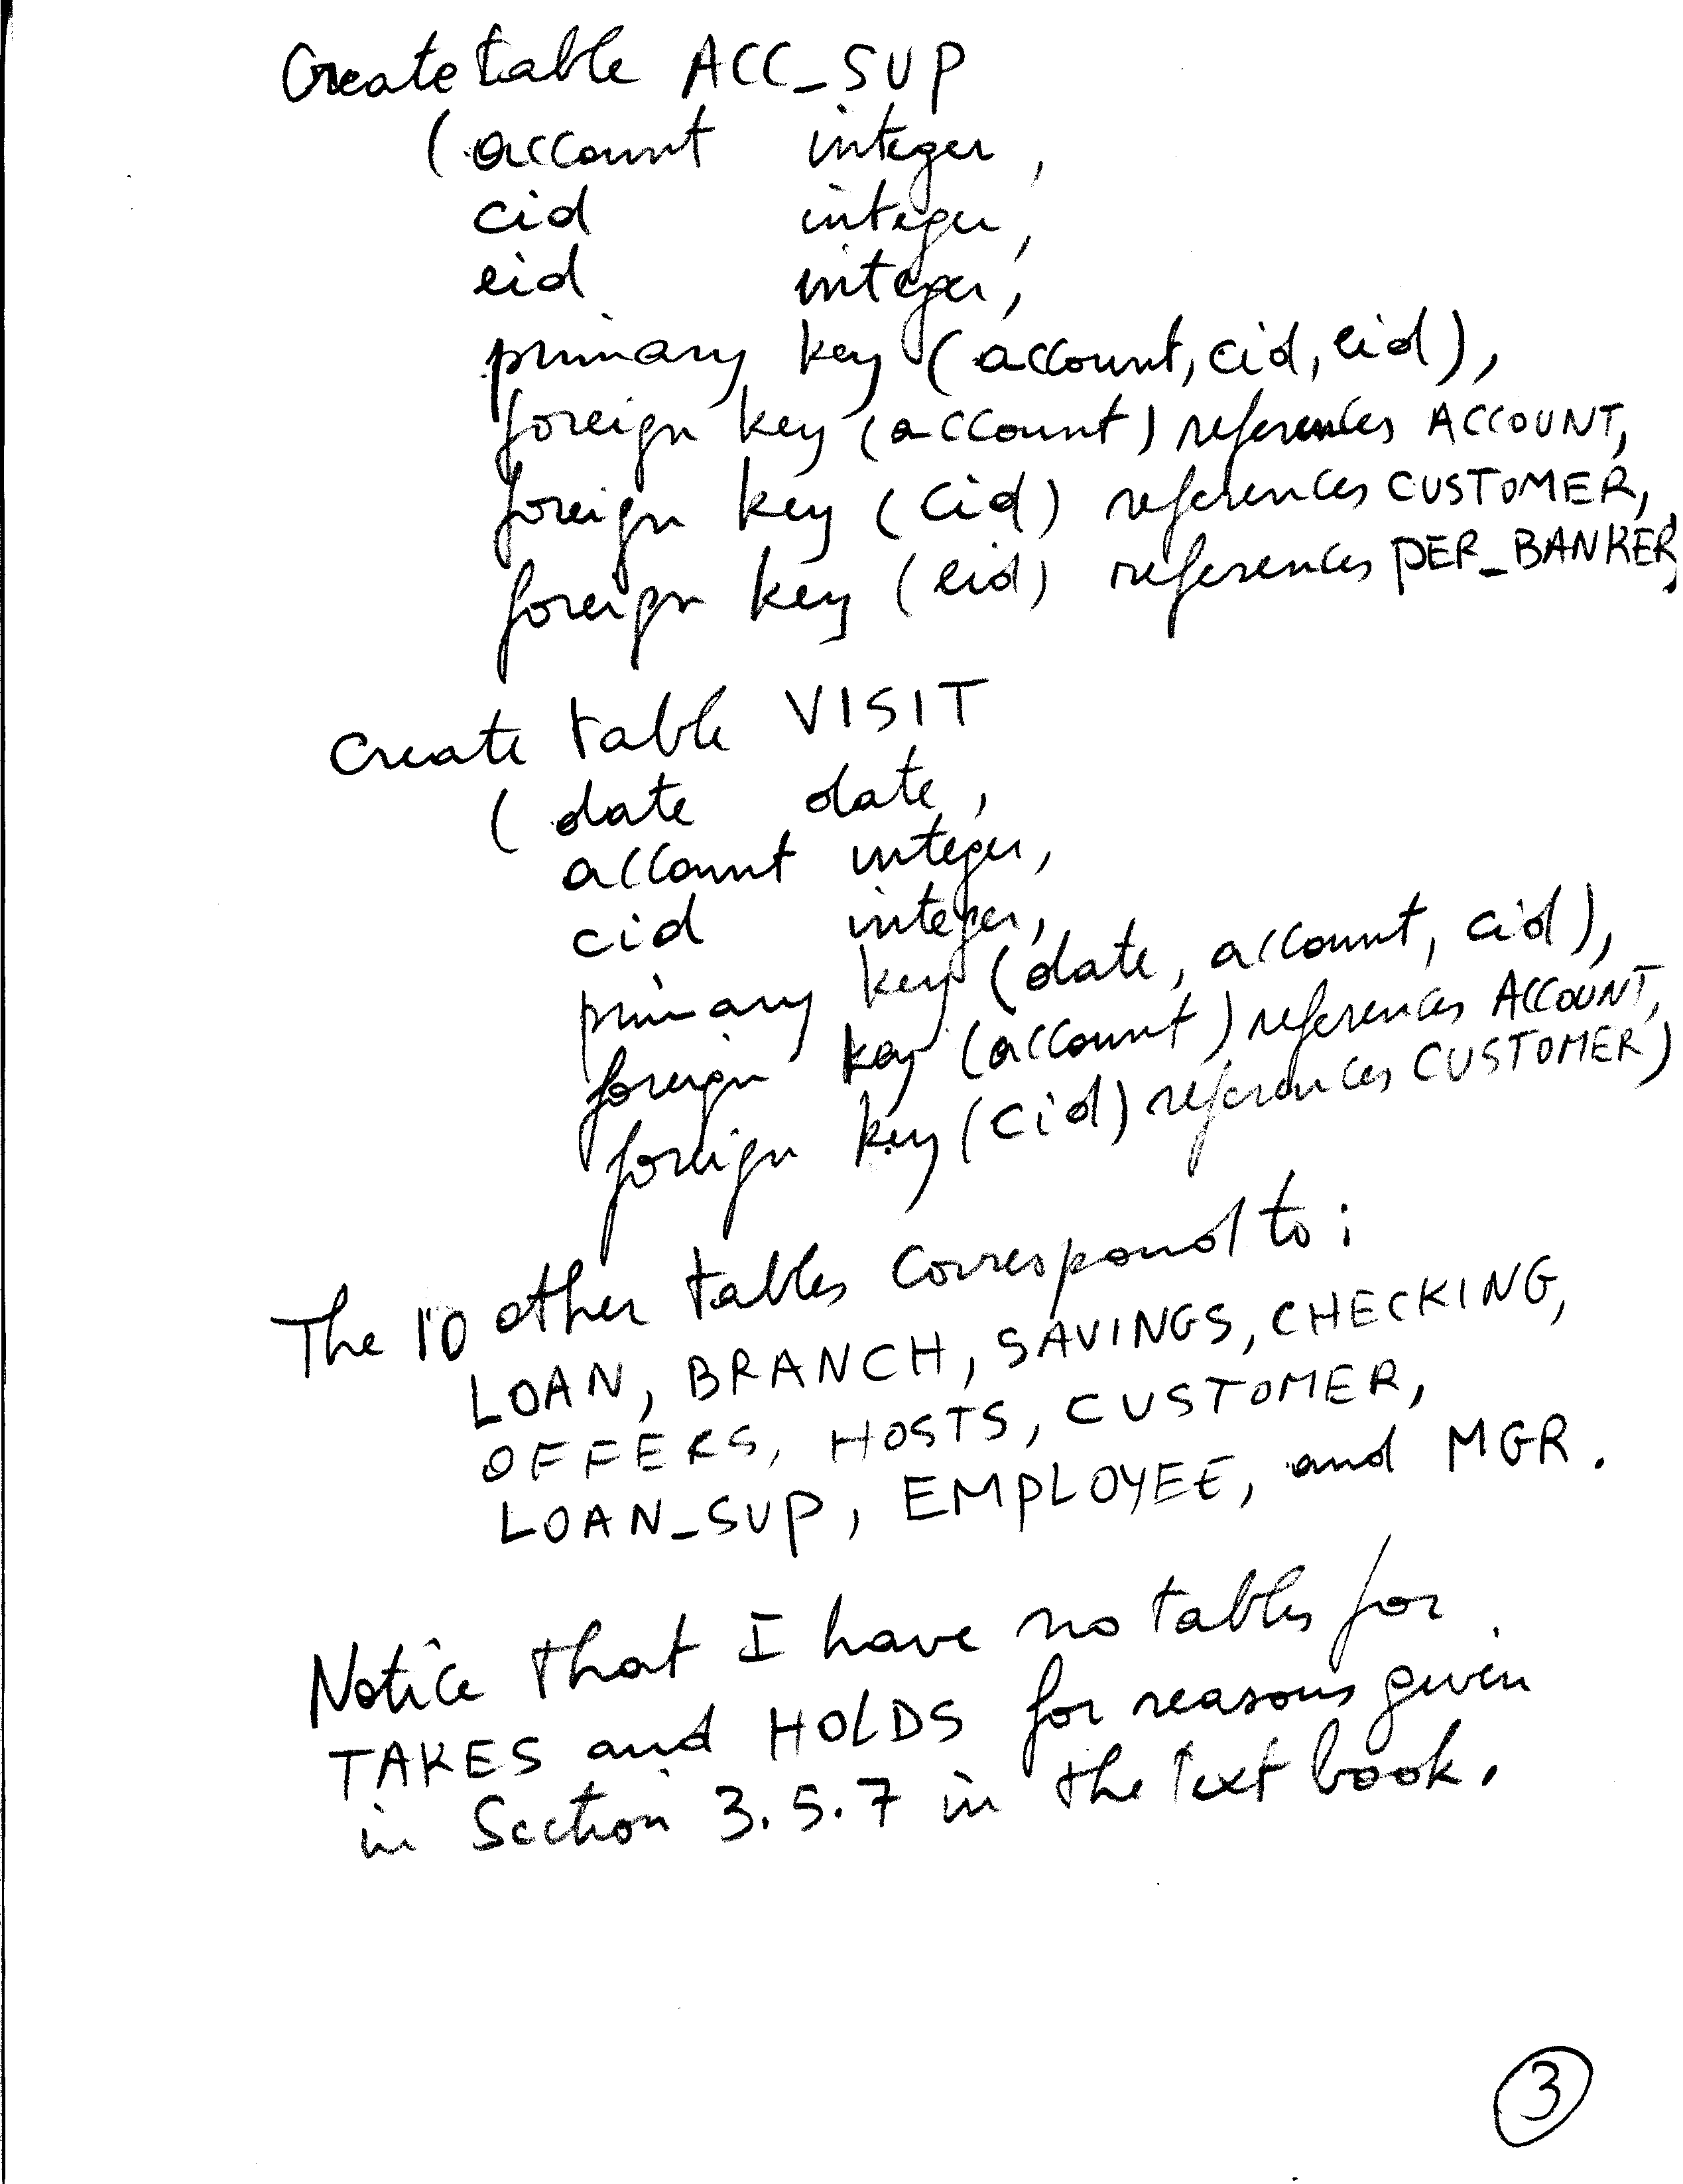 Create table ACC_SUP
(account integer,
cid integer,
eid integer,
primary key (account, cid, eid),
foreign key (account) references ACCOUNT,
foreign key (cid) references CUSTOMER,
foreign key (eid) references PER_BANKER)
Create table VISIT
(date date,
account integer,
cid integer,
primary key (date, account, cid),
foreign key (account) references ACCOUNT,
foreign key (cid) references CUSTOMER)
The 10 other tables correspond to:
LOAN, BRANCH, SAVINGS, CHECKING,
OFFERS, HOSTS, CUSTOMER,
LOAN_SUP, EMPLOYEE, and MGR.
Notice that I have no tables for
TAKES and HOLDS for reasons given
in Section 3.5.7 in the text book.
3